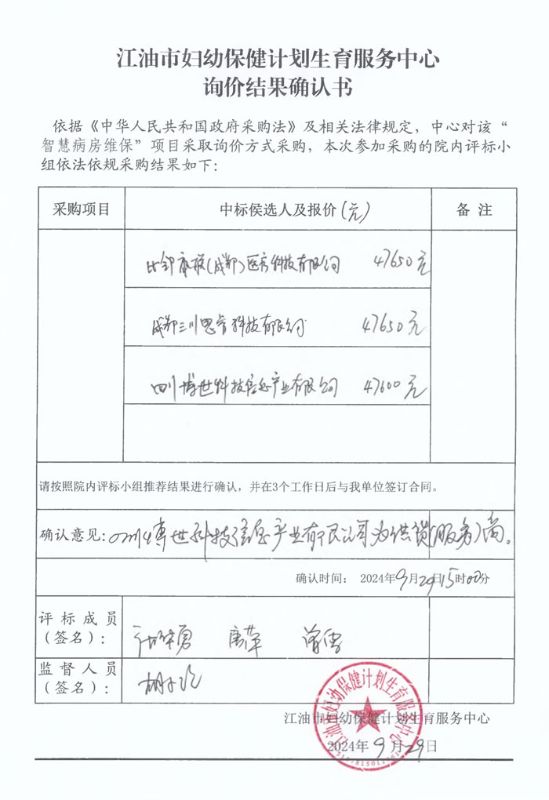 江油市妇幼保健计划生育服务中心
询价结果确认书
依据《中华人民共和国政府采购法》及相关法律规定，中心对该“
智慧病房维保”项目采取询价方式采购，本次参加采购的院内评标小
组依法依规采购结果如下：
采购项目 中标候选人及报价(元) 备 注
(成都)医疗科技有限公司 47650元
成都三川思睿科技有限公司 47650元
四川博世科技信息产业有限公司 47600元
请按照院内评标小组推荐结果进行确认，并在3个工作日后与我单位签订合同。
确认意见：四川博世科技信息产业有限公司为供货(服务)商。
确认时间： 2024年9月29日15时00分
评标成员
（签名）： 唐萍
监督人员
（签名）：
江油市妇幼保健计划生育服务中心
2024年9月29日
江油市妇幼保健计划生育服务中心